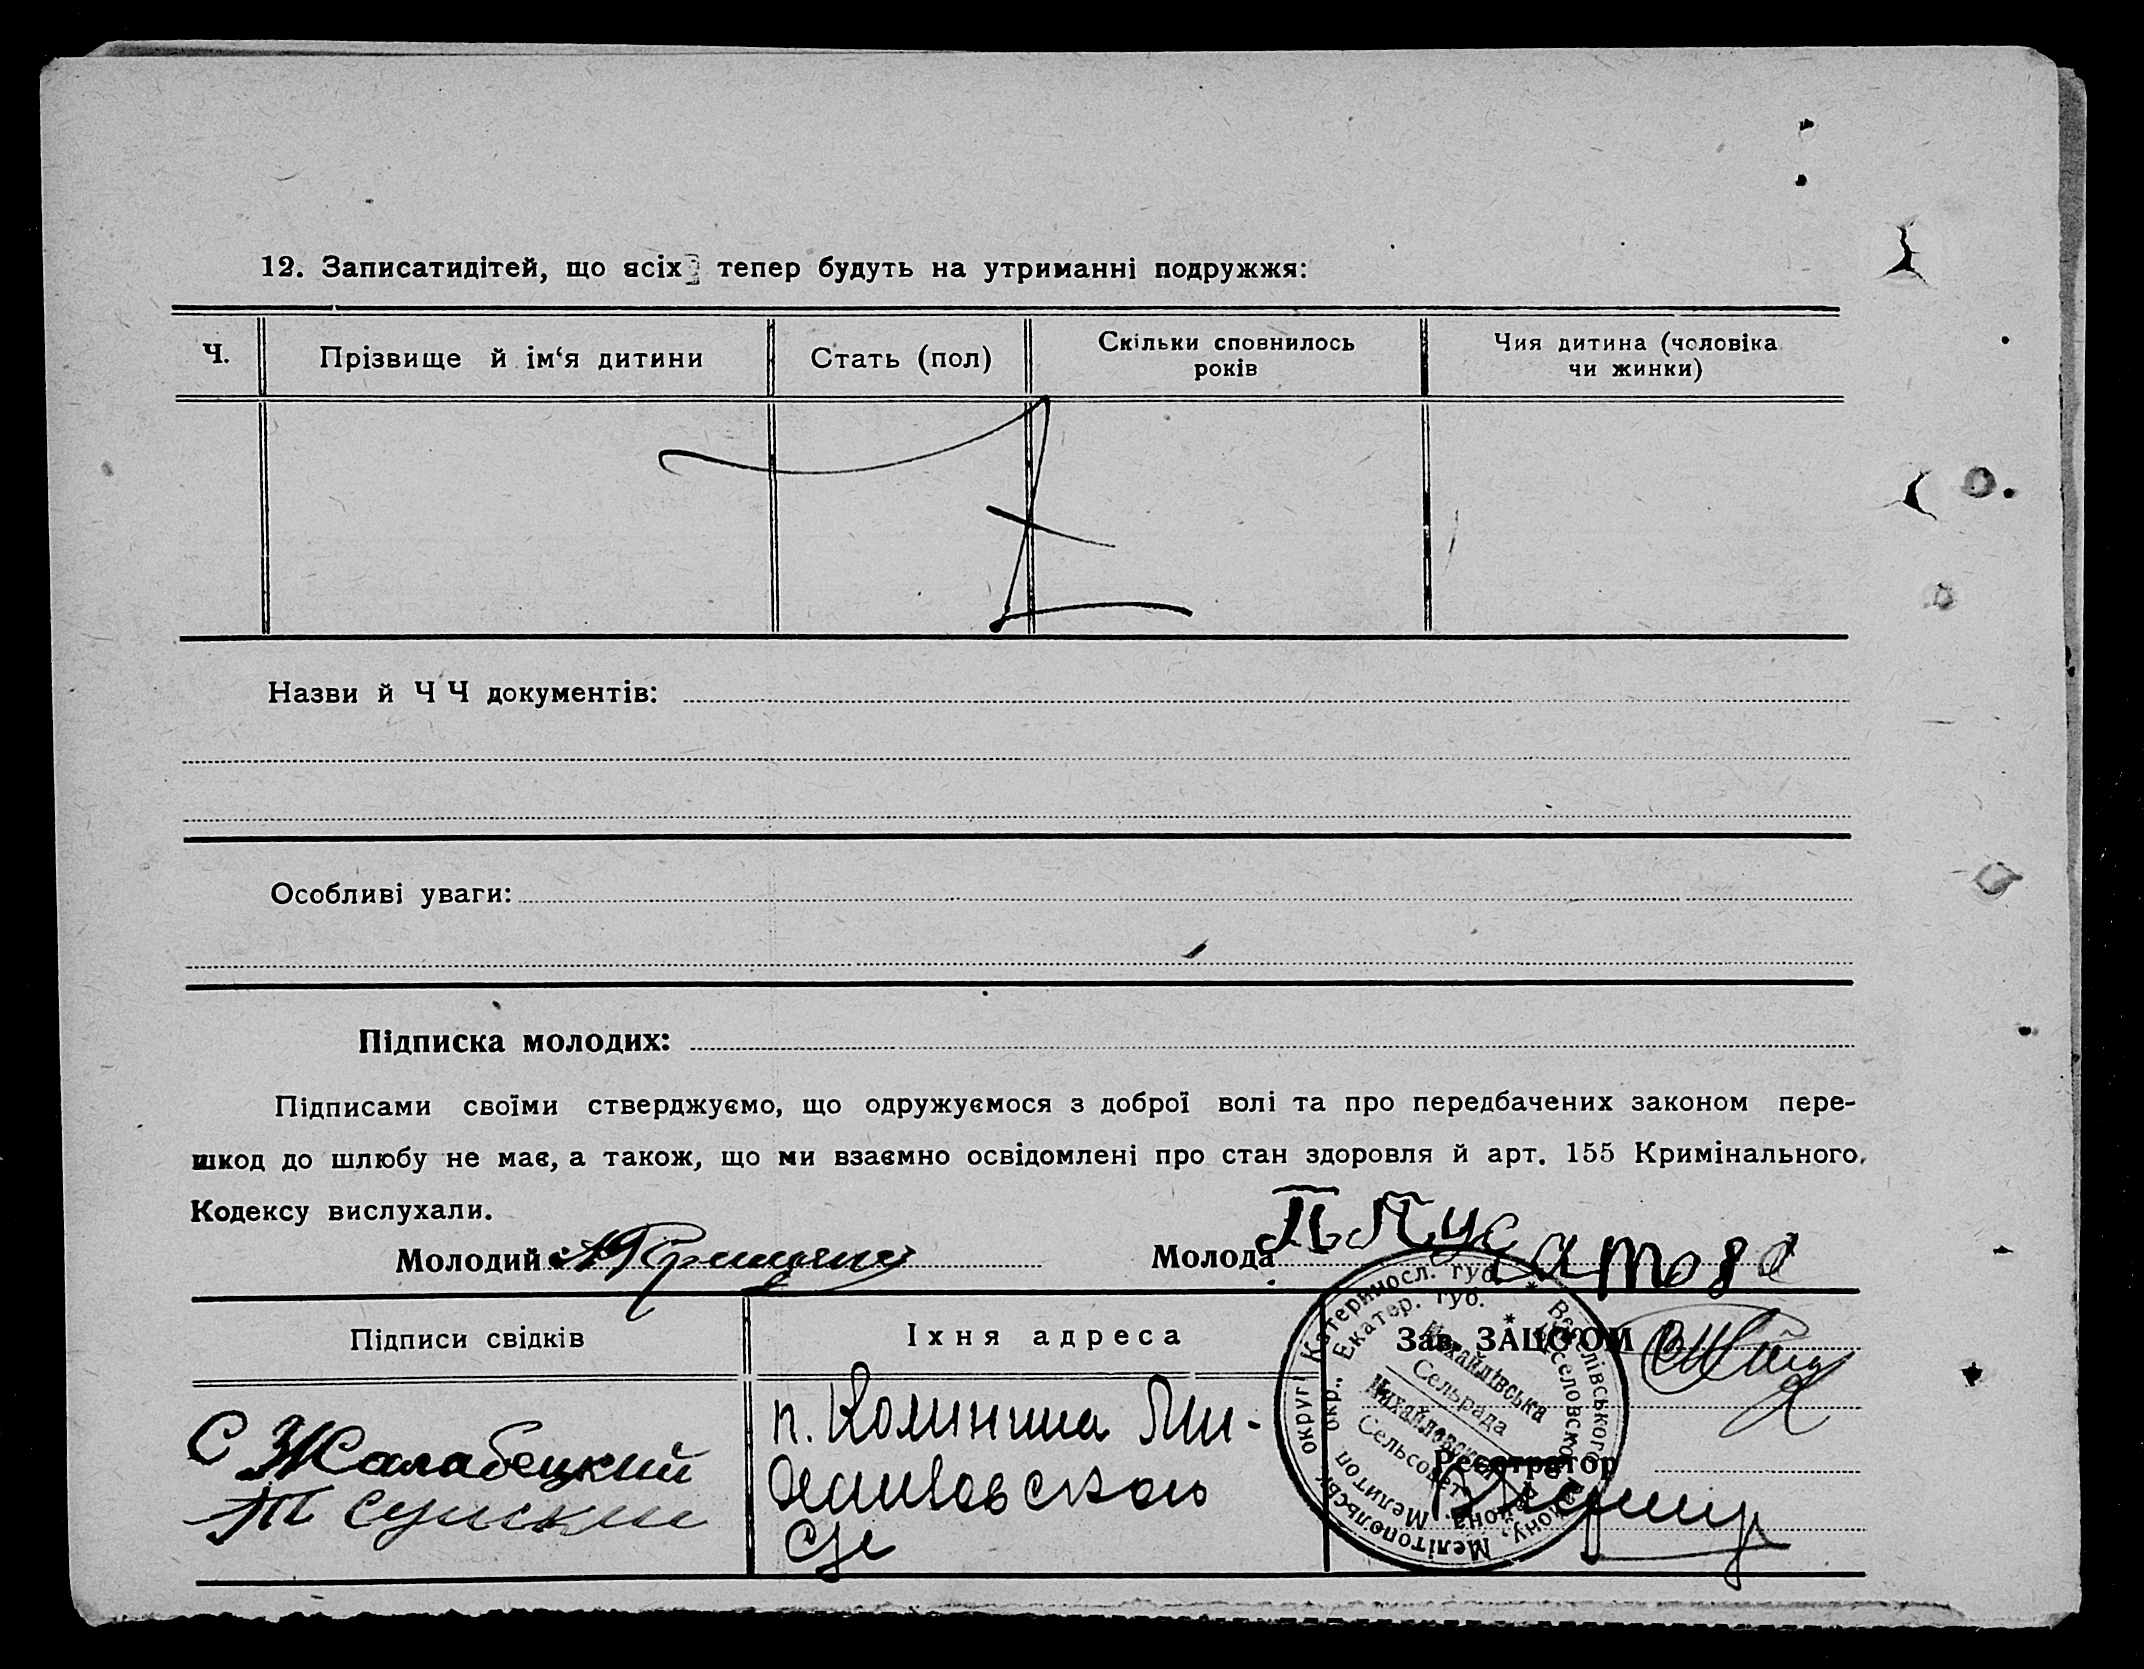 12. Записатидітей, що всіх тепер будуть на утриманні подружжя:
Ч.
Прізвище й ім‘я дитини
Стать (пол)
Скільки сповнилось
років
Чия дитина (чоловіка
чи жинки)
Назви й Ч Ч документів:
Особливі уваги:
Підписка молодих:
Підписами своїми стверджуємо, що одружуємося з доброї волі та про передбачених законом пере-
шкод до шлюбу не має, а також, що ми взаємно освідомлені про стан здоровля й арт. 155 Кримінального
Кодексу вислухали.
Молодий
Молода П. Пусатова
Підписи свідків
Їхня адреса
Зав. ЗАЦС‘ОМ
С Жалабецкий
п. Колинина Ми-
хайловского
С/с
Реєстратор
Мелітопольськ. округ. Катериносл. губ. * Веселівського району,
Мелитоп. окр., Екатер. губ. * Веселовского района
Михайлівська
Сельрада
Михайловский
Сельсовет